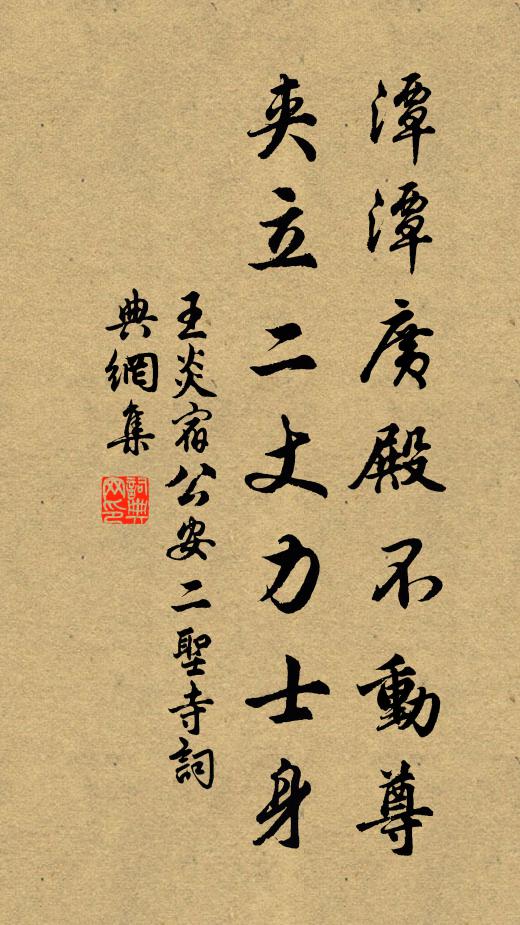 潭潭廣殿不動尊
夾立二丈力士身
王炎宿公安二聖寺詞
典網集
詞典网印